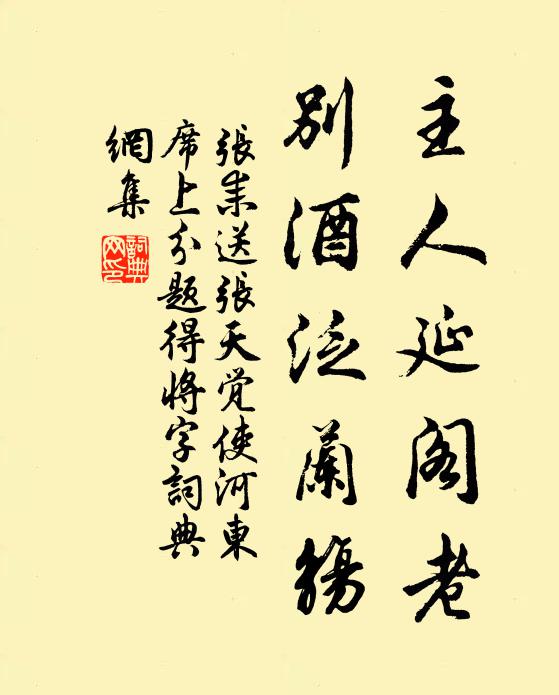 主人延阁老
别酒泛蘭觴
張耒送張天觉使河東
席上分題得将字詞典
網集
詞典網印